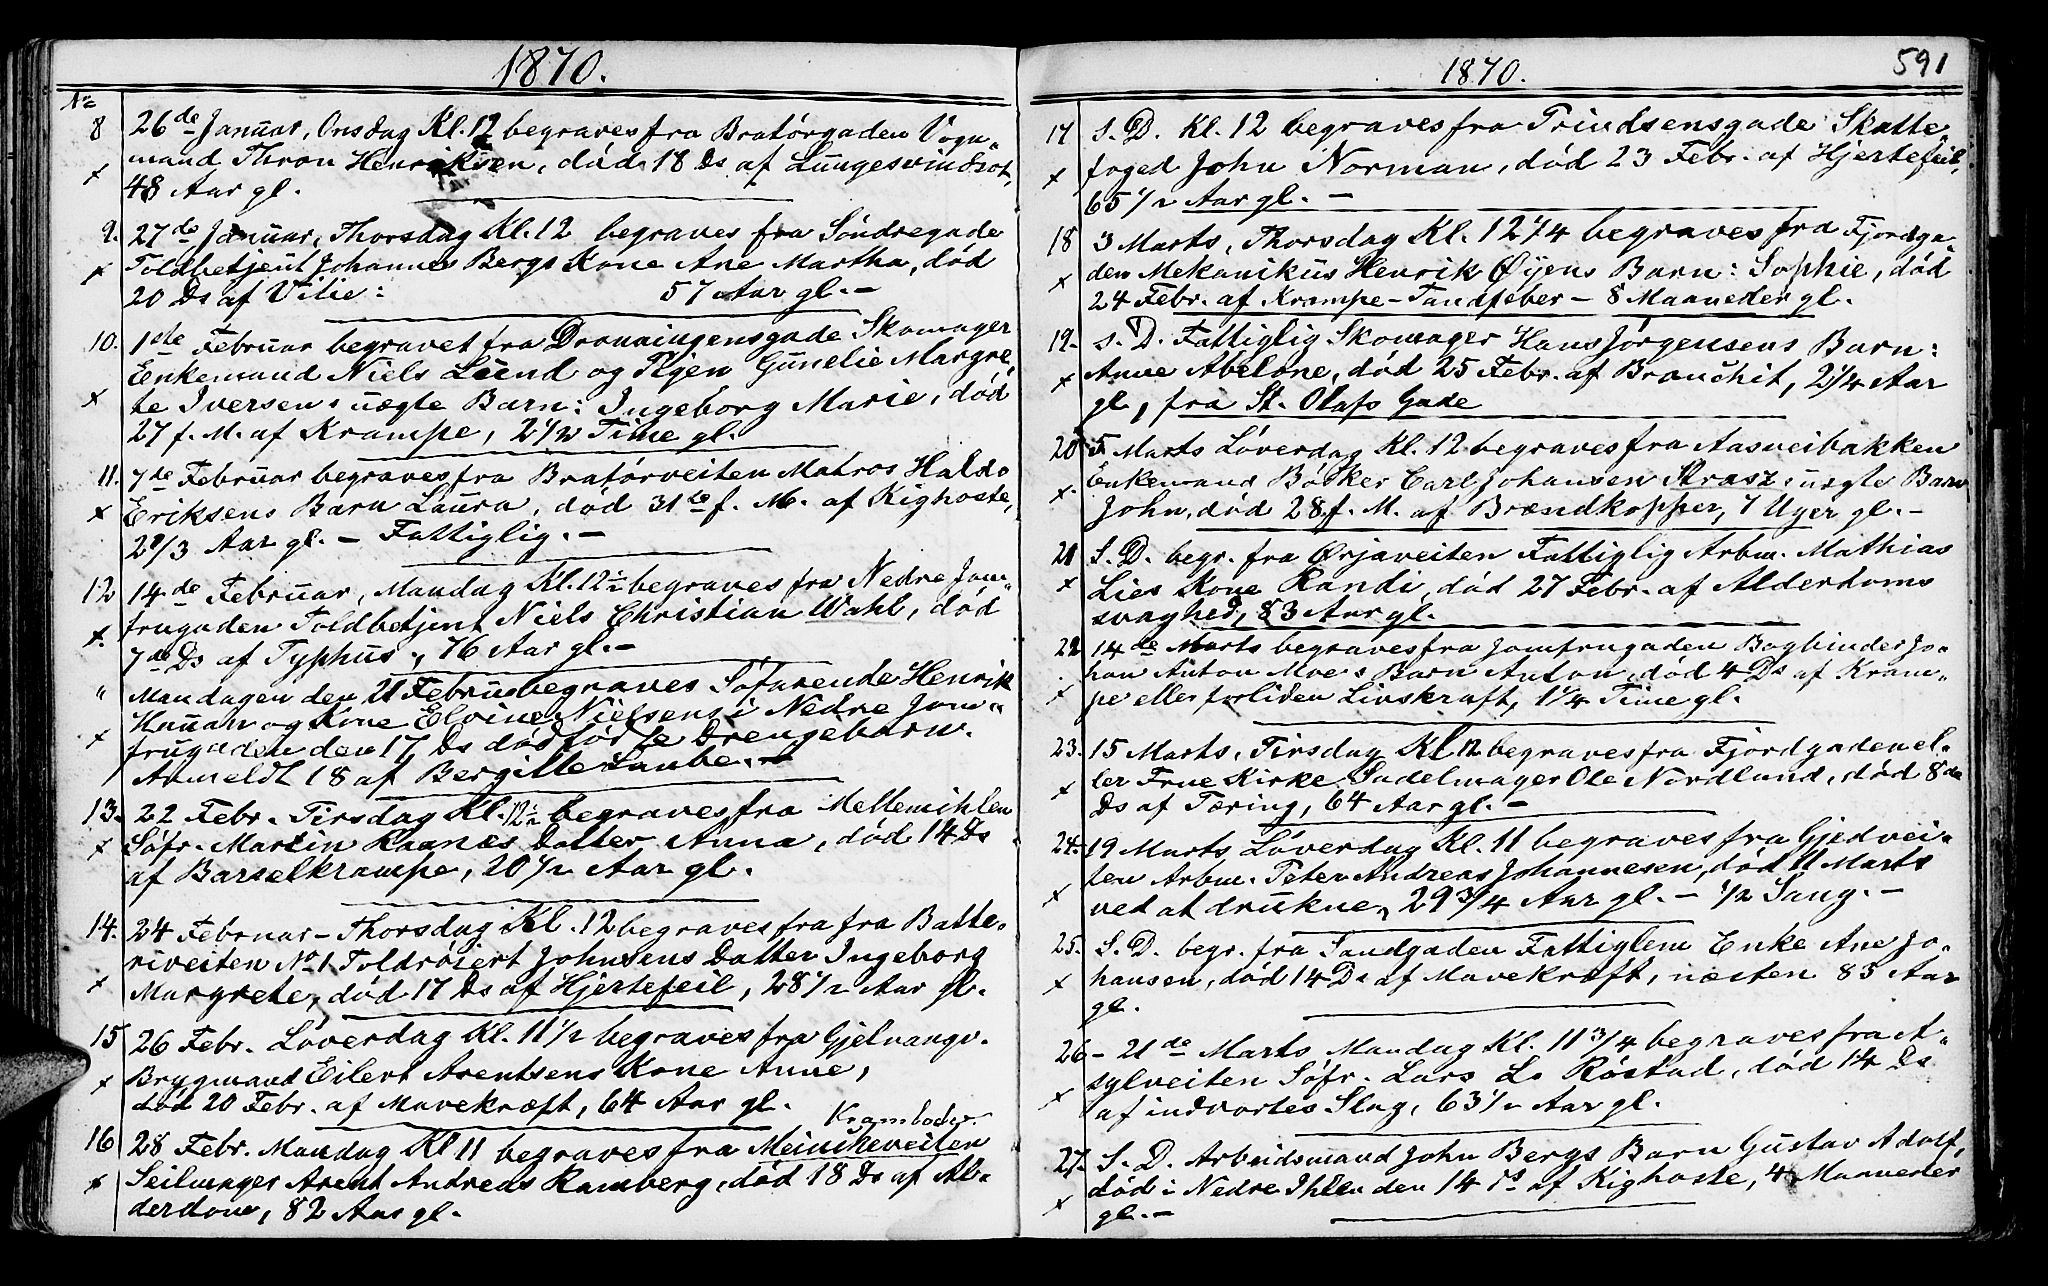 1870.
No
8 26de Januar, Onsdag Kl. 12 begraves fra Bratörgaden Vogn-
mand Thron Henriksen, död 18 Ds af Lungesvindsot,
48 Aar gl.
9. 27de Januar, Thorsdag Kl. 12 begraves fra Söndregade
Toldbetjent Johannes Bergs Kone Ane Martha, död
20 Ds af 57 Aar gl. -
10. 1ste Februar begravet fra Dronningensgade Skomager
Enkemand Niels Lund og Pigen Gunelie Margre-
te Iversens uægte Barn: Ingeborg Marie, död
27 f. M. af Krampe, 2 1/2 Time gl.
11. 7de Februar begraves fra Bratörveiten Matros Haldo
Eriksens Barn Laura, död 31te f. M. af Kighoste,
2 2/3 Aar gl. - Fattiglig. -
12 14de Februar, Mandag Kl. 12 1/2 begraves fra Nedre Jom-
frugaden Toldbetjent Niels Christian Wahl, död
7de Ds af Typhus, 76 Aar gl. -
" Mandagen den 21 Februar begraves Söfarende Henrik
og Kone Elvine Nielsens i Nedre Jom-
frugaden den 17 Ds dödfödte Drengebarn.
Anmeldt 18 af Bergitte Laube. -
13. 22 Febr. Tirsdag Kl. 12 1/2 begraves fra Mellemihlen
Söfr. Martin Raanes Datter Anna, död 14 Ds
af Barselkrampe, 20 1/2 Aar gl.
14. 24 Februar - Thorsdag Kl. 12 begraves fra fra Batte-
riveiten No 1 Toldröiert Johnsens Datter Ingeborg
Margrete, död 17 Ds af Hjertefeil, 28 1/2 Aar gl.
15 26 Febr. Löverdag Kl. 11 1/2 begraves fra Gjelvangv.
Brygmand Eilert Arentsens Kone Anne,
död 20 Febr. af Mavekræft, 64 Aar gl.
Krambodv.
16 28 Febr. Mandag Kl 11 begraves fra Meincheveiten
Seilmager Arent Andreas Ramberg, död 18 Ds af Al-
derdom, 82 Aar gl.
1870. 591
17 S. D. Kl. 12 begraves fra Prindsensgade Skatte-
foged John Norman, död 23 Febr. af Hjertefeil,
65 1/2 Aar gl. -
18 3 Marts, Thorsdag Kl. 12 1/4 begraves fra Fjordga-
den Mekanikus Henrik Øyens Barn: Sophie, död
24 Febr. af Krampe - Tandfeber - 8 Maaneder gl.
19. S. D. Fattiglig Skomager Hans Jörgensens Barn:
Anne Abelone, död 25 Febr. af Bronchit, 2 1/4 Aar
gl, fra St. Olafs Gade
20 5 Marts Löverdag Kl. 12 begraves fra Aasveibakken
Enkemand Böcker Carl Johansen Strasz's uægte Barn
John, död 28 f. M. af Brændkopper, 7 Uger gl. -
21 S. D. begr. fra Ørjaveiten Fattiglig Arbm. Mathias
Lies Kone Randi, död 27 Febr. af Alderdoms
svaghed, 83 Aar gl.
22 14de Marts begraves fra Jomfrugaden Bogbinder Jo-
han Anton Moe's Barn Anton, död 4 Ds af Kram-
pe eller forliden Livskraft, 1 1/4 Time gl.
23. 15 Marts, Tirsdag Kl 12 begraves fra Fjordgaden el-
ler Frue Kirke Sadelmager Ole Nordlund, död 8de
Ds af Tæring, 64 Aar gl. -
24. 19 Marts Löverdag Kl. 11 begraves fra Gjedvei-
ten Arbm. Peter Andreas Johannesen, död 11 Marts
ved at drukne, 29 3/4 Aar gl. - 1/2 Sang. -
25. S. D. begr. fra Sandgaden Fattiglem Enke Ane Jo-
hansen, död 14 Ds af Mavekræft, næsten 85 Aar
gl.
26 - 21de Marts Mandag Kl. 11 3/4 begraves fra A-
sylveiten Söfr. Lars L. Röstad, död 14 Ds
af indvortes Slag, 63 1/2 Aar gl.
27. S. D. Arbeidsmand John Bergs Barn Gustav Adolf,
död i Nedre Ihlen den 14 Ds af Kighoste, 4 Maaneder
gl. -